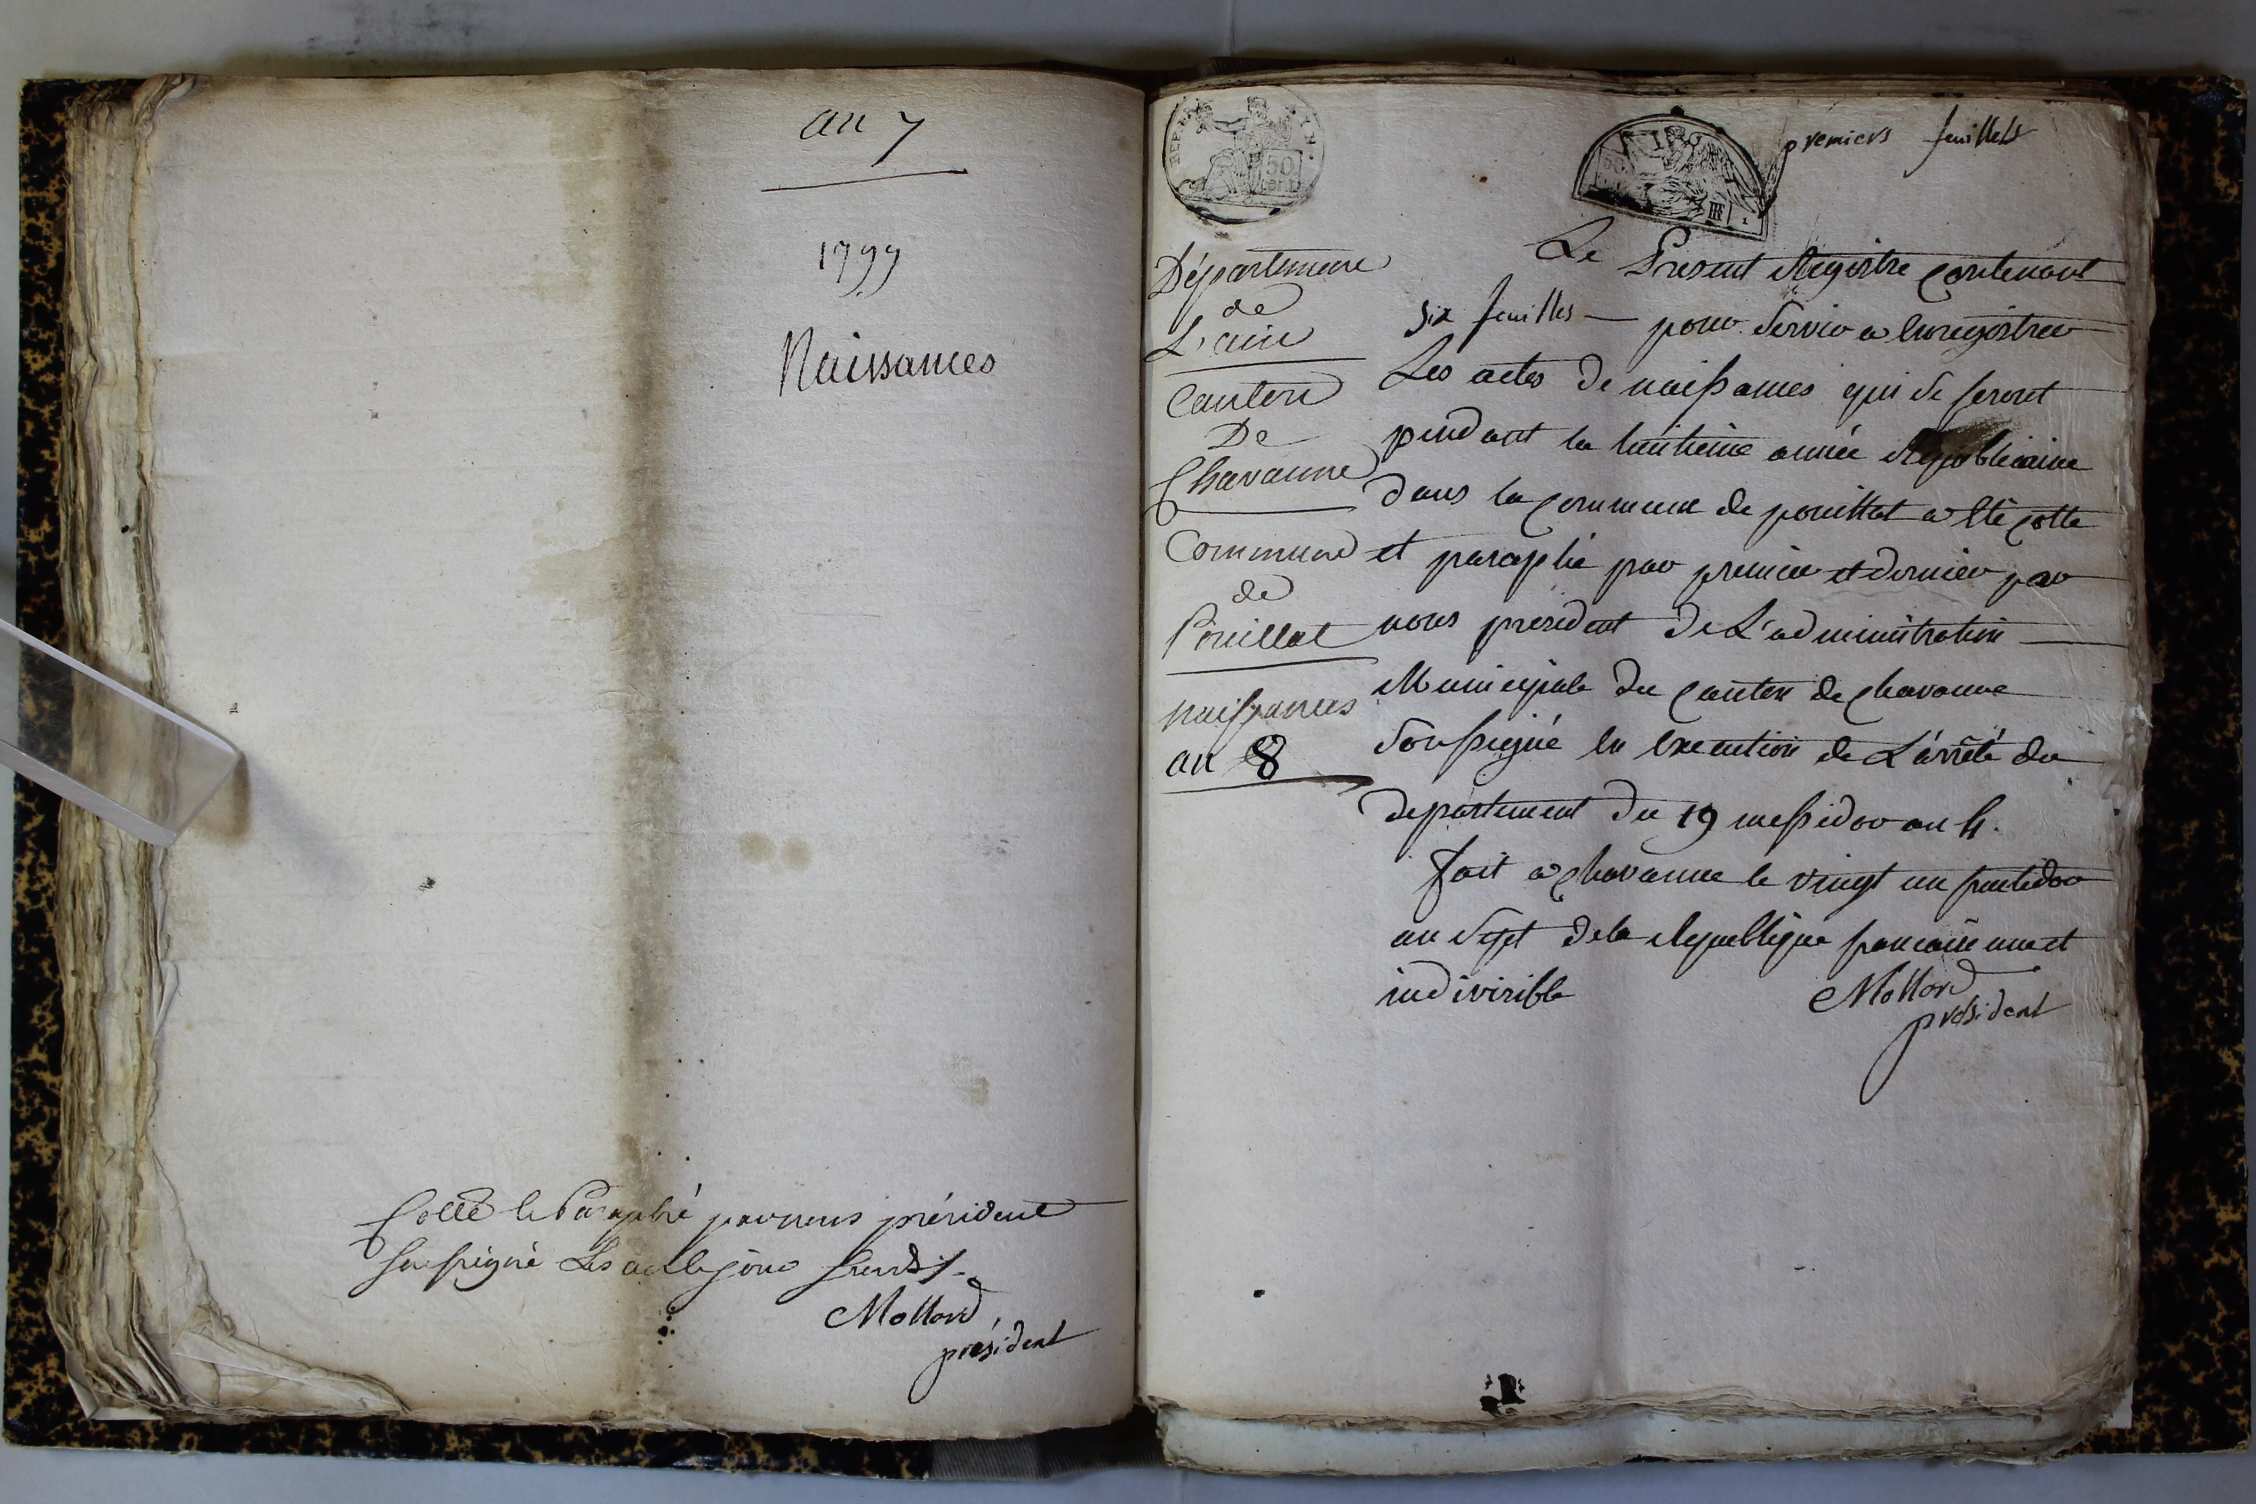 an 7
1799
Naissances
Collé le Paraphé par nous président
soussigné les an le jour
Mottard
président
50
premiers feuillets
Département
de
L'ain
Canton
De
Chavanne
Commune
de
Pouillat
naissances
an 8
Le Present Registre contenant
six feuilles pour servir a enregistrer
Les actes de naissances qui se feront
pendant la huitieme année Republicaine
dans la commune de pouillat a été cotté
et paraphé par premier et dernier par
nous president de L'administration
Municipale du Canton de chavanne
soussigné en execution de L'arrêté du
departement du 19 messidor an 4.
fait a chavanne le vingt un fructidor
an sept de la Republique francaise une et
indivisible
Mottard
président